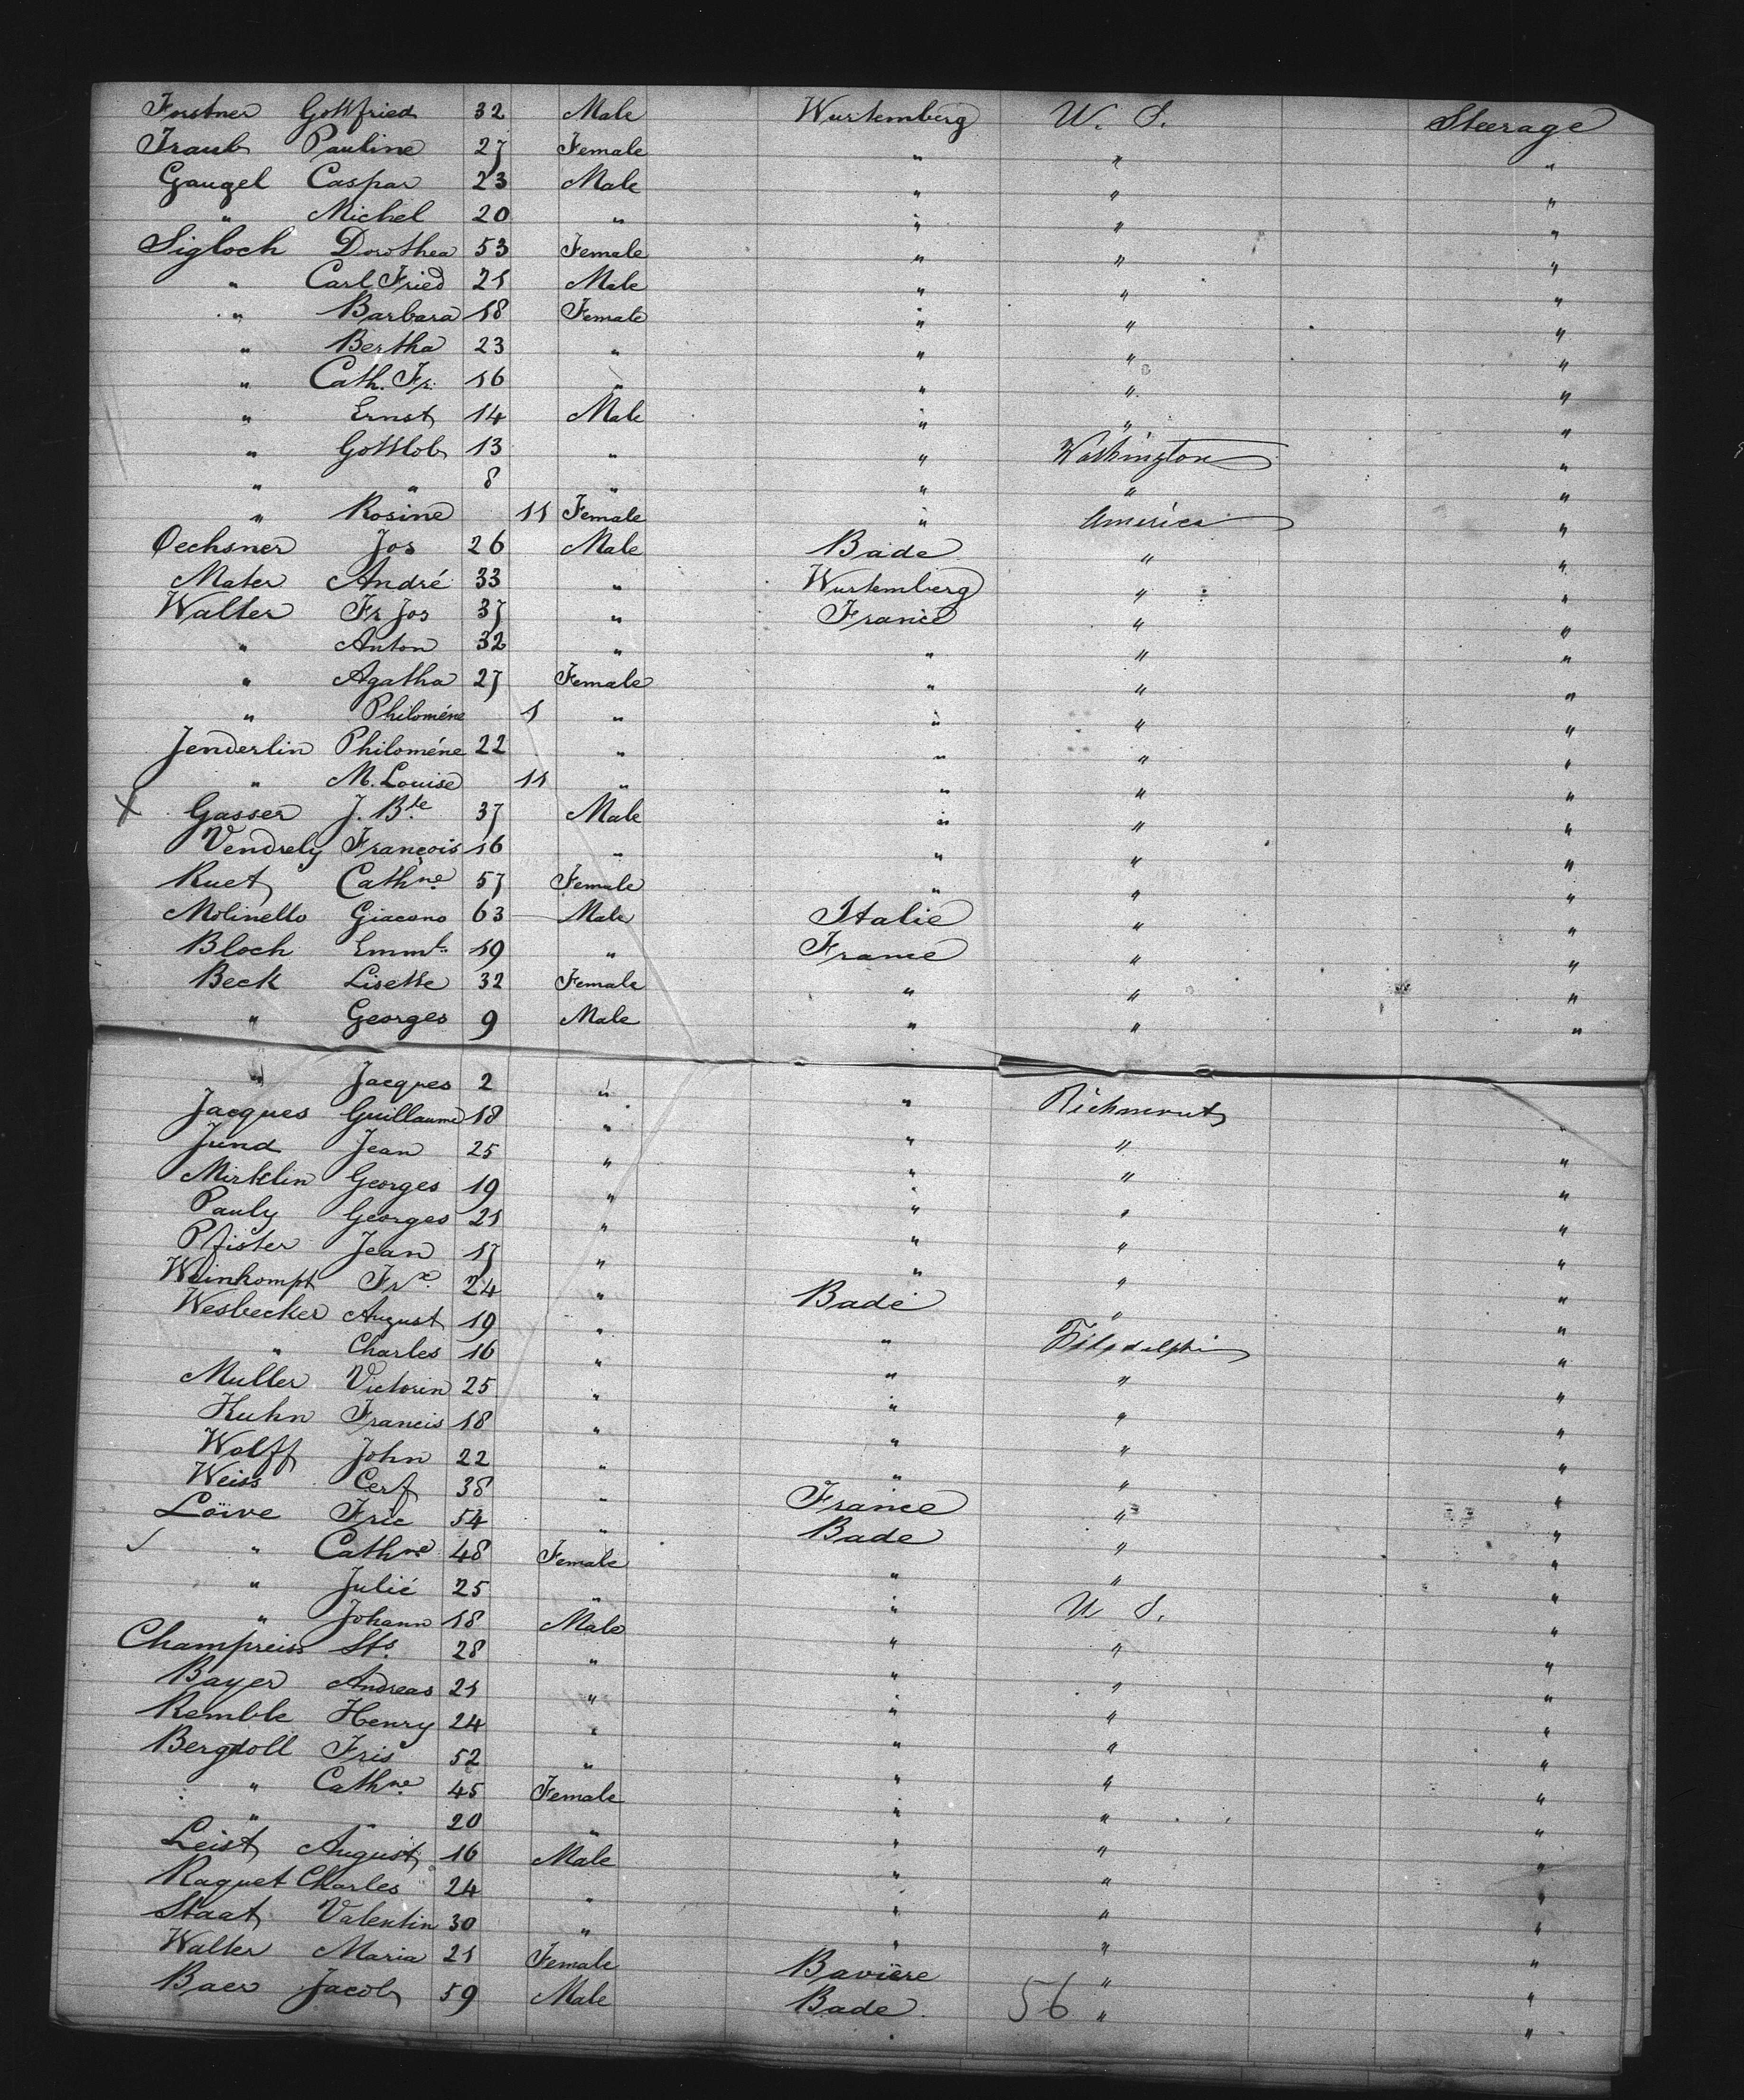 Forstner Gottfried 32 Male Wurtemberg U. S. Steerage
Traub Pauline 27 Female " " "
Gaugel Caspar 23 Male " " "
" Michel 20 " " " "
Sigloch Dorothea 53 Female " " "
" Carl Fried 21 Male " " "
" Barbara 18 Female " " "
" Bertha 23 " " " "
" Cath. Fr. 16 " " " "
" Ernst 14 Male " " "
" Gottlob 13 " " Washington "
" " 8 " " " "
" Rosine 11 Female " America "
Oechsner Jos 26 Male Bade " "
Mater André 33 " Wurtemberg " "
Walter Fr Jos 37 " France " "
" Anton 32 " " " "
" Agatha 27 Female " " "
" Philoméne 1 " " " "
Jenderlin Philoméne 22 " " " "
" M. Louise 11 " " " "
X Gasser J. Bte 37 Male " " "
Vendrely François 16 " " " "
Ruet Cathne 57 Female " " "
Molinello Giacono 63 Male Italie " "
Bloch Emml 19 " France " "
Beck Lisette 32 Female " " "
" Georges 9 Male " " "
" Jacques 2 " " Richmont "
Jacques Guillaume 18 " " " "
Jund Jean 25 " " " "
Mirklin Georges 19 " " " "
Pauly Georges 21 " " " "
Pfister Jean 17 " " " "
Weinkompt Frx 24 " Bade " "
Wesbecker August 19 " " Filadelphi "
" Charles 16 " " " "
Muller Victorin 25 " " " "
Kuhn Francis 18 " " " "
Wolff John 22 " " " "
Weiss Cerf 38 " France " "
Löive Fric 54 " Bade " "
" Cathne 48 Female " " "
" Julie 25 " " U S. "
" Johann 18 Male " " "
Champreiss Sts. 28 " " " "
Bayer Andreas 21 " " " "
Remble Henry 24 " " " "
Bergdoll Fris 52 " " " "
" Cathne 45 Female " " "
" " 20 " " " "
Leist August 16 Male " " "
Raquet Charles 24 " " " "
Staat Valentin 30 " " " "
Walter Maria 21 Female Baviere " "
Baer Jacob 59 Male Bade 56 " "